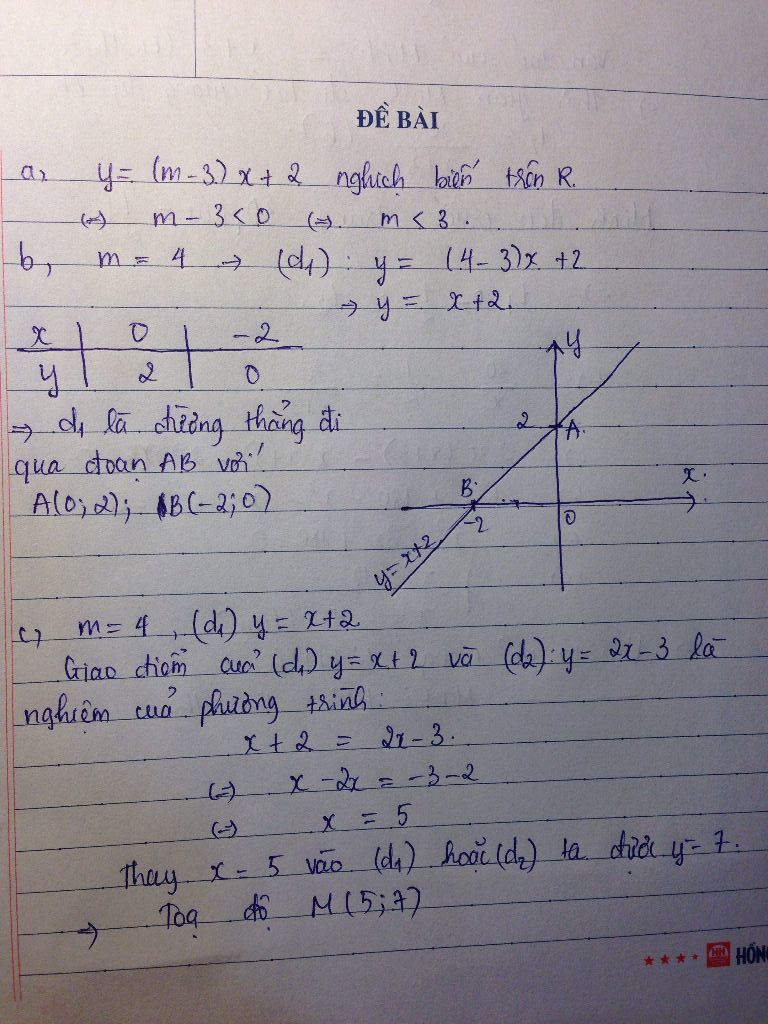 ĐỀ BÀI
a, y = (m-3)x + 2 nghịch biến trên R.
(=) m - 3 < 0 (=) m < 3.
b, m = 4 → (d1): y = (4-3)x + 2
→ y = x+2.
x | 0 | -2
y | 2 | 0
⇒ d1 là đường thẳng đi
qua đoạn AB với
A(0; 2); B(-2; 0)
y
2
A.
B.
x.
-2
0
y = x+2
c) m = 4, (d1) y = x+2
Giao điểm của (d1) y = x+2 và (d2): y = 2x-3 là
nghiệm của phương trình:
x + 2 = 2x - 3.
(=) x - 2x = -3 - 2
(=) x = 5
Thay x = 5 vào (d1) hoặc (d2) ta được y = 7.
⇒ Toạ độ M(5; 7)
HH HỒNG